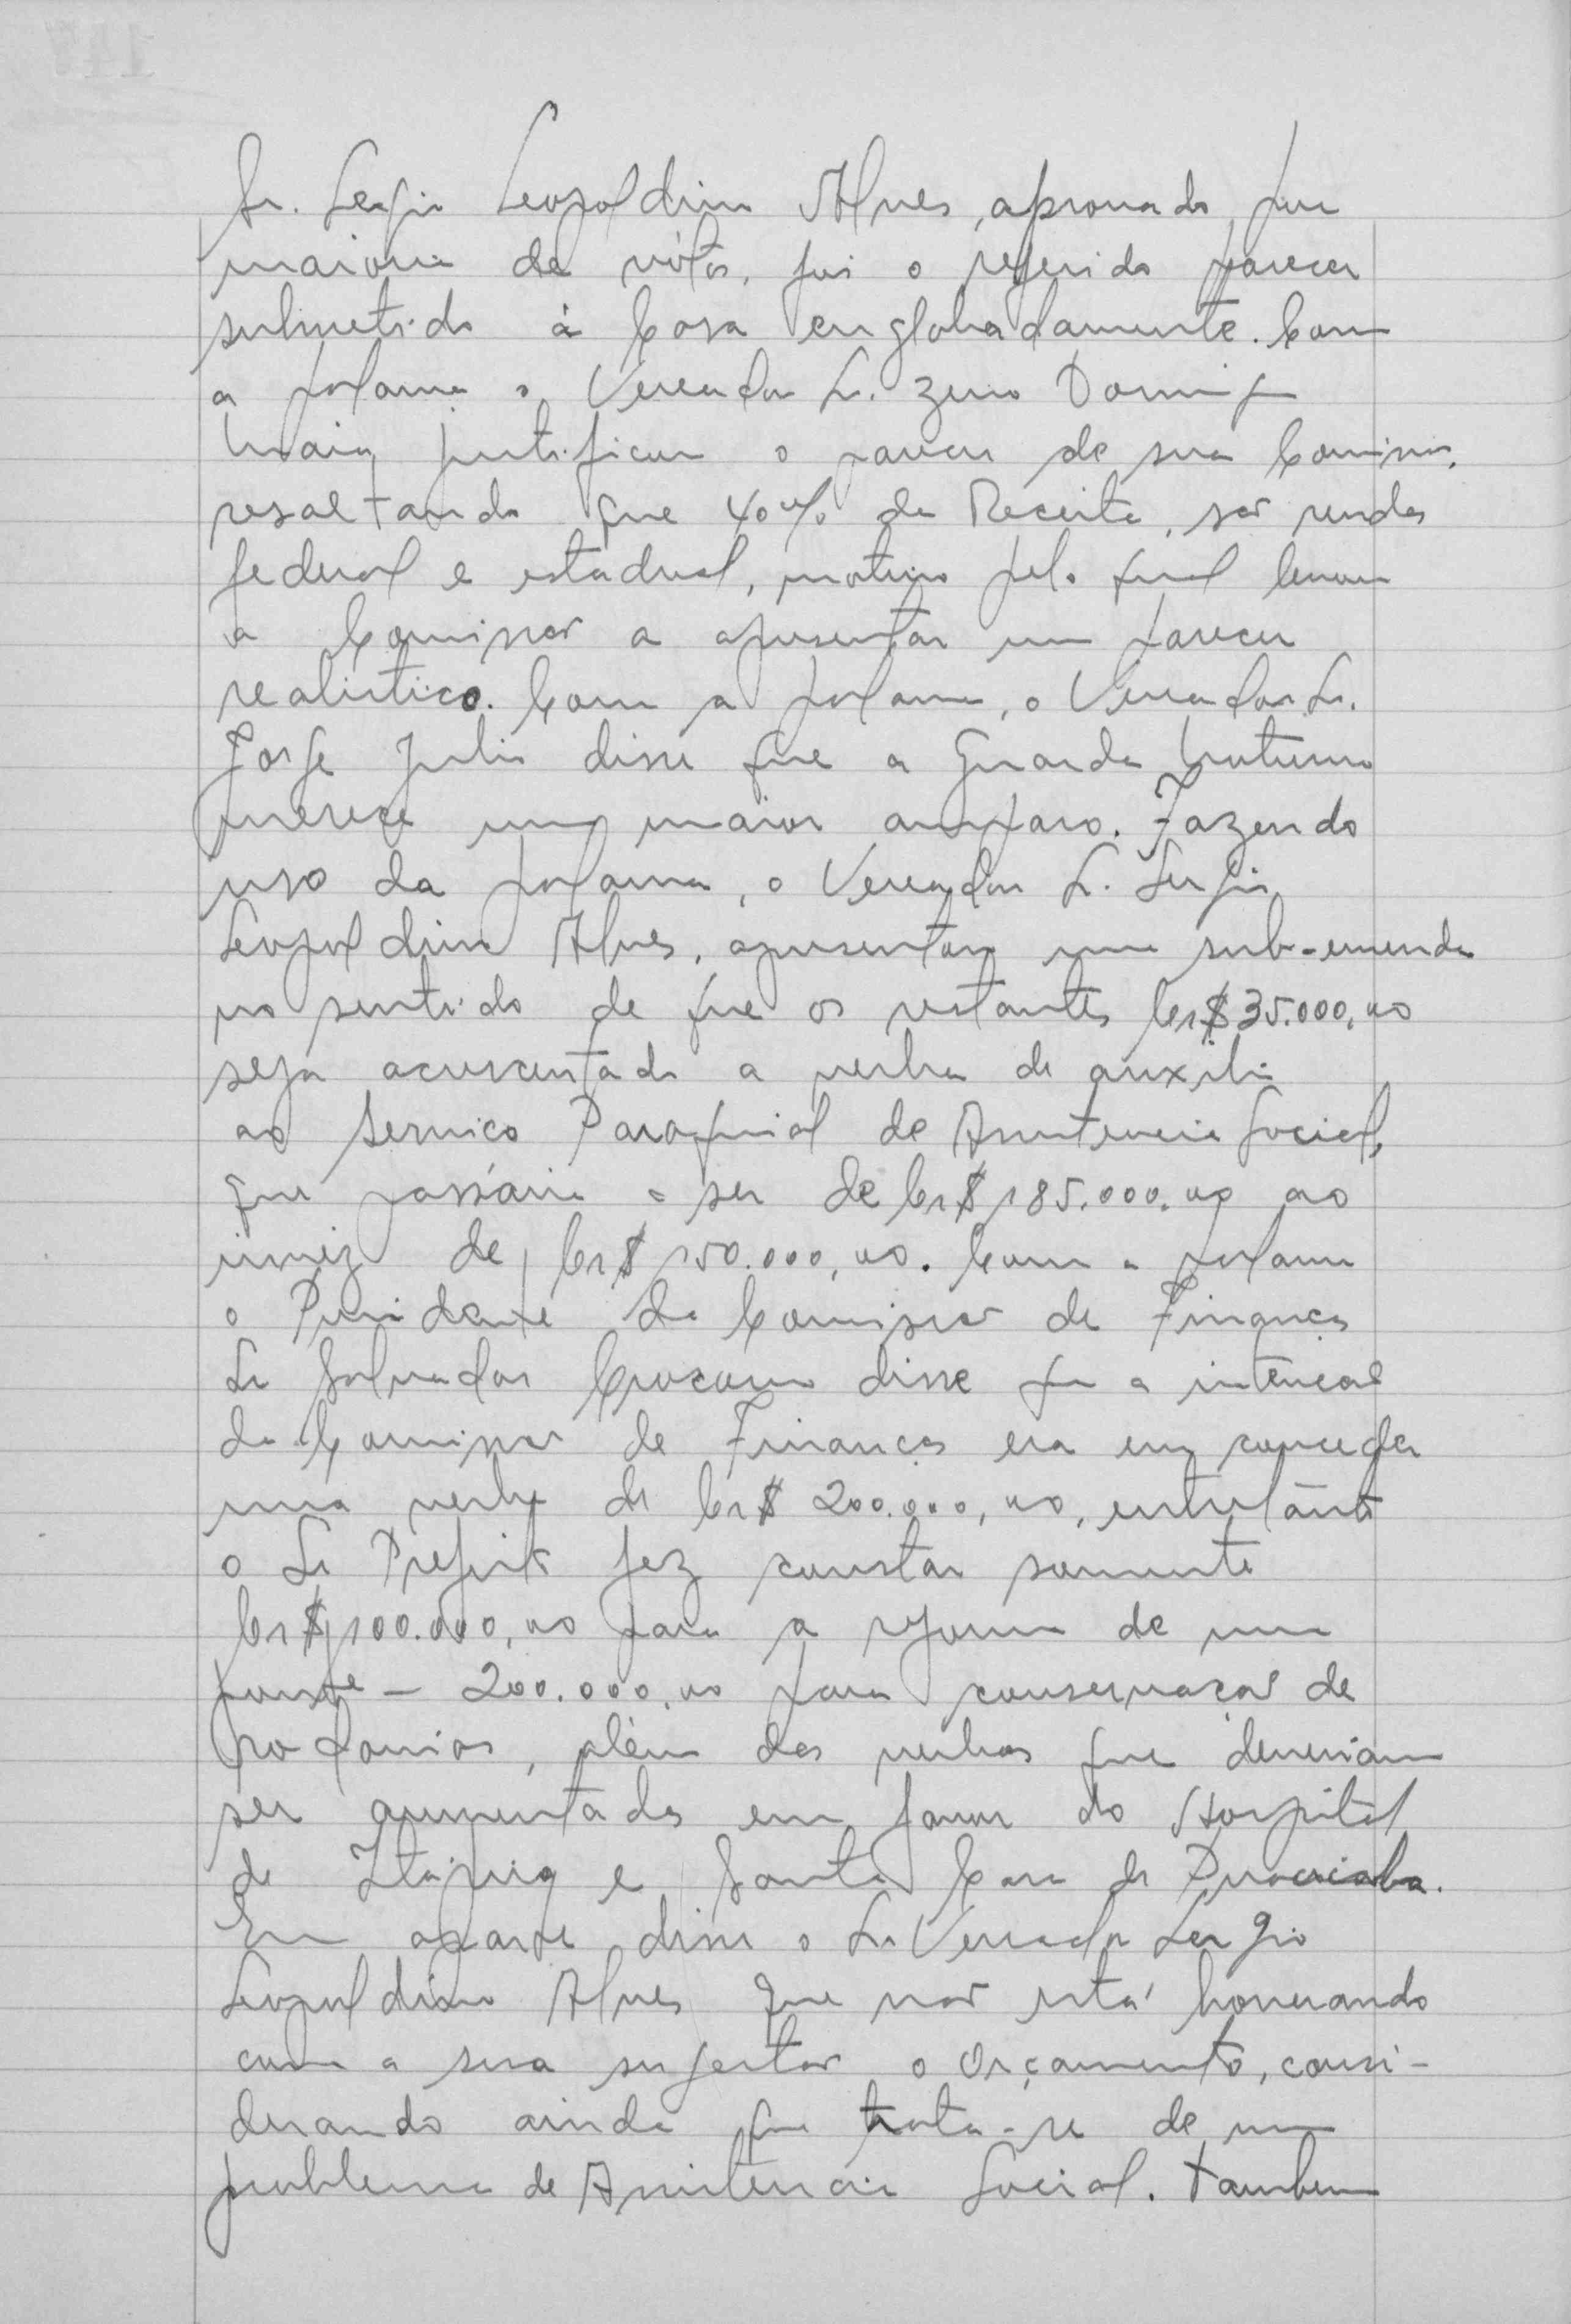 Sr. Sergio Leopoldino Alves, aprovado por
maioria de vótos, foi o referido parecer
submetido á Casa englobadamente. Com
a palavra o Vereador Sr. Zeno Domingos
Maia justificou o parecer de sua Comissão,
resaltando que 40% da Receita, são rendas
federal e estadual, motivo pelo qual levou
a Comissão a apresentar um parecer
realistico. Com a palavra, o Vereador Sr.
Jorge Julio disse que a Guarda Noturna
merece um maior amparo. Fazendo
uso da palavra, o Vereador Sr. Sergio
Leopoldino Alves, apresentou uma sub-emenda
no sentido de que os restantes Cr$ 35.000,00
seja acrescentado a verba de auxilio
ao Serviço Paroquial de Assistencia Social,
que passária a ser de Cr$ 185.000,00 ao
invez de Cr$ 150.000,00. Com a palavra
o Presidente da Comissão de Finanças
Sr Salvador disse que a intenção
da Comissão de Finanças era em conceder
uma verba de Cr$ 200.000,00, entretânto
o Sr Prefeito fez constar somente
Cr$ 100.000,00 para a reforma de uma
ponte - 200.000,00 para conservação de
rodovias, além das verbas que deveriam
ser aumentadas em favor do Hospital
de e Santa Casa de Piracicaba.
Em aparte disse o Sr. Vereador Sergio
Leopoldino Alves que não está honerando
com a sua sugestão o Orçamento, consi-
derando ainda que trata-se de um
problema de Assistencia Social. Tambem